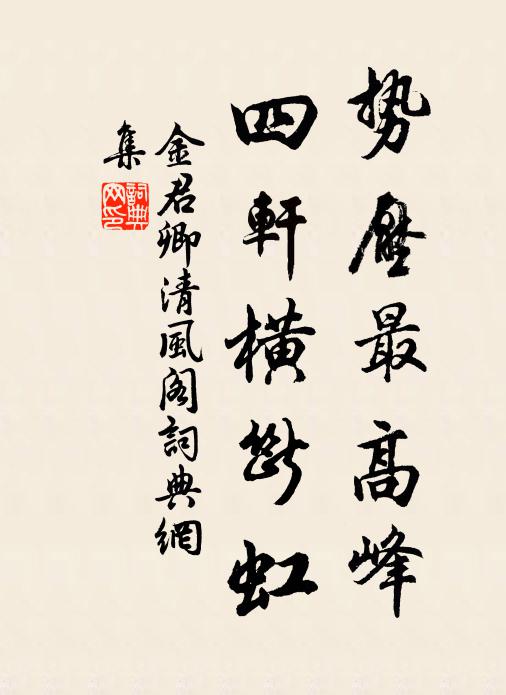 势壓最高峰
四軒橫斷虹
金君卿清風阁詞典網
集
詞典網印